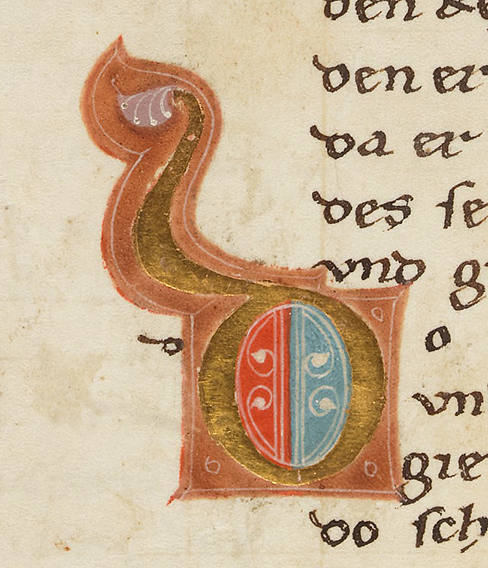 den
den er
da er
des ſe
vnd g
D o
vn
gre
do ſch